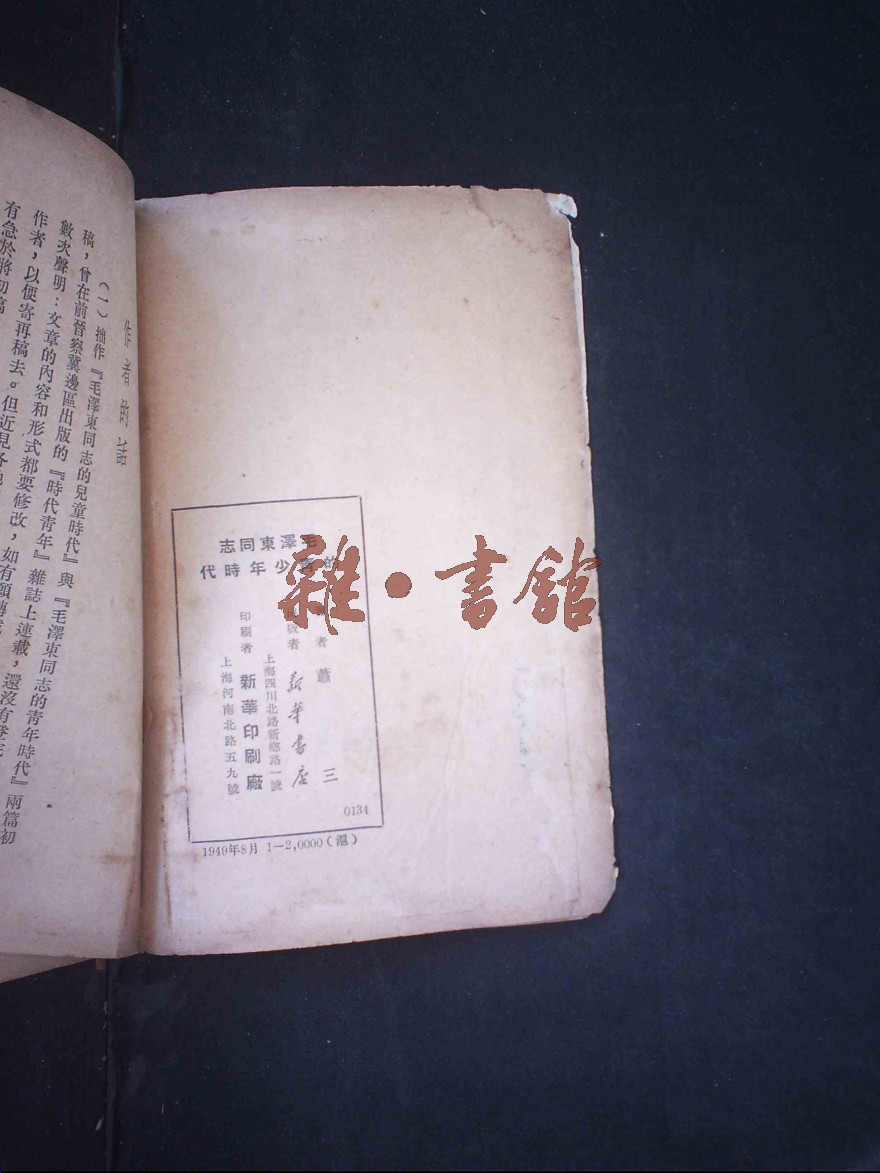 作者的話
(一)拙作『毛澤東同志的兒童時代』與『毛澤東同志的青年時代』兩篇初
稿，曾在前晉察冀邊區出版的『時代青年』雜誌上連載，還沒有登完
數次聲明：文章的內容和形式都要修改，如有願轉
作者，以便寄再稿去。但近見各
有急於將初稿
毛澤東同志
的青少年時代
者 蕭三
版者 新華書店
上海四川北路新鄉路一號
印刷者 新華印刷廠
上海河南北路五九號
0134
1949年8月 1—2,0000(滬)
雜·書館